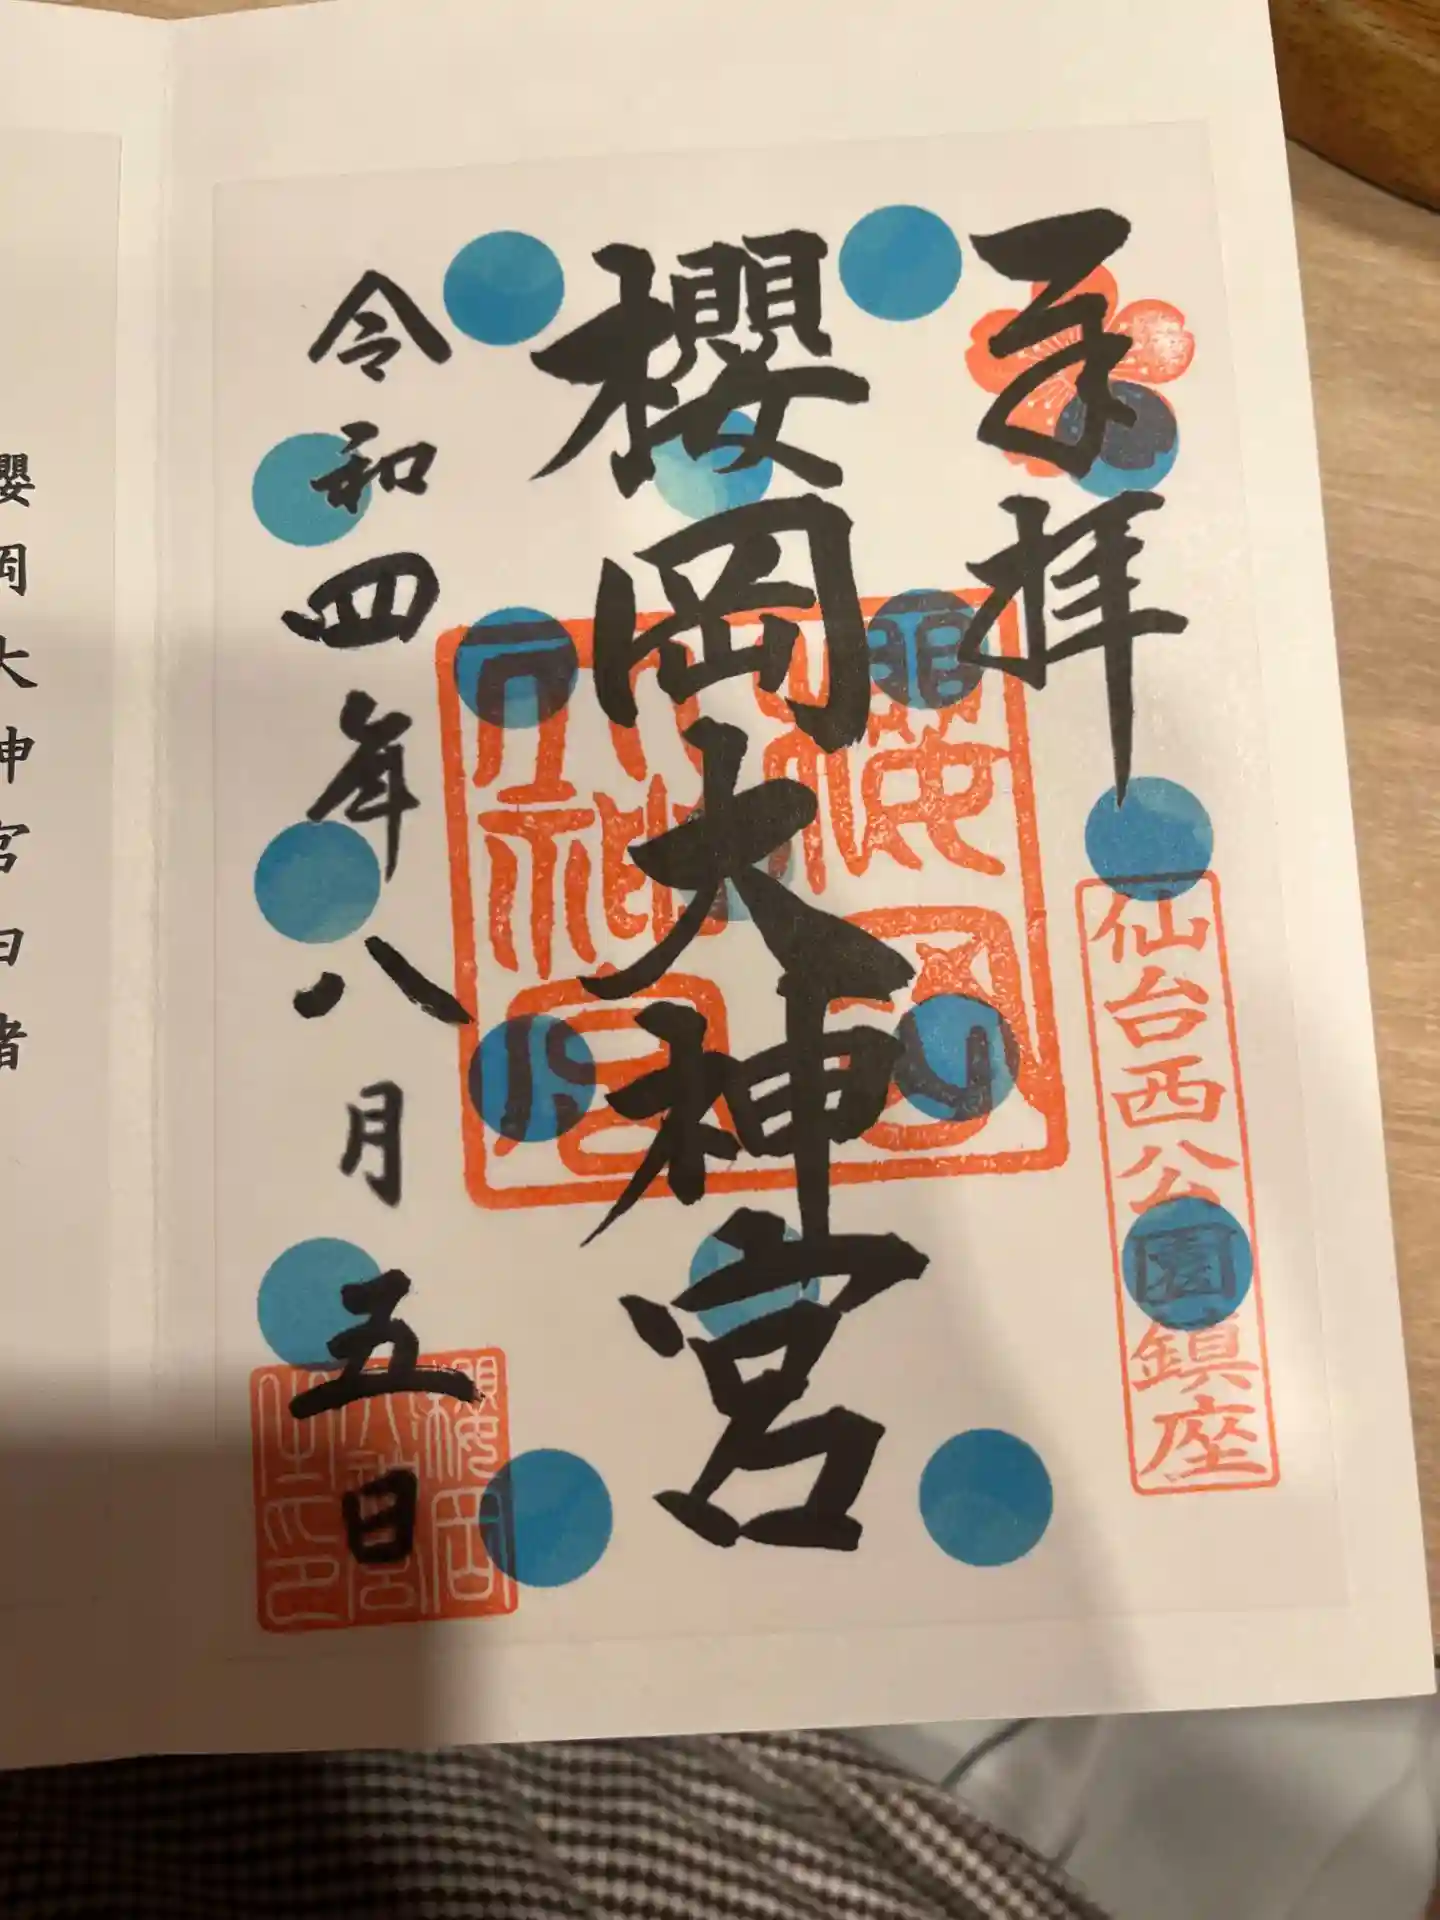 奉拝
仙台西公園鎮座
櫻岡大神宮
櫻岡大神宮
令和四年八月五日
櫻岡大神宮之印
櫻岡大神宮由緒